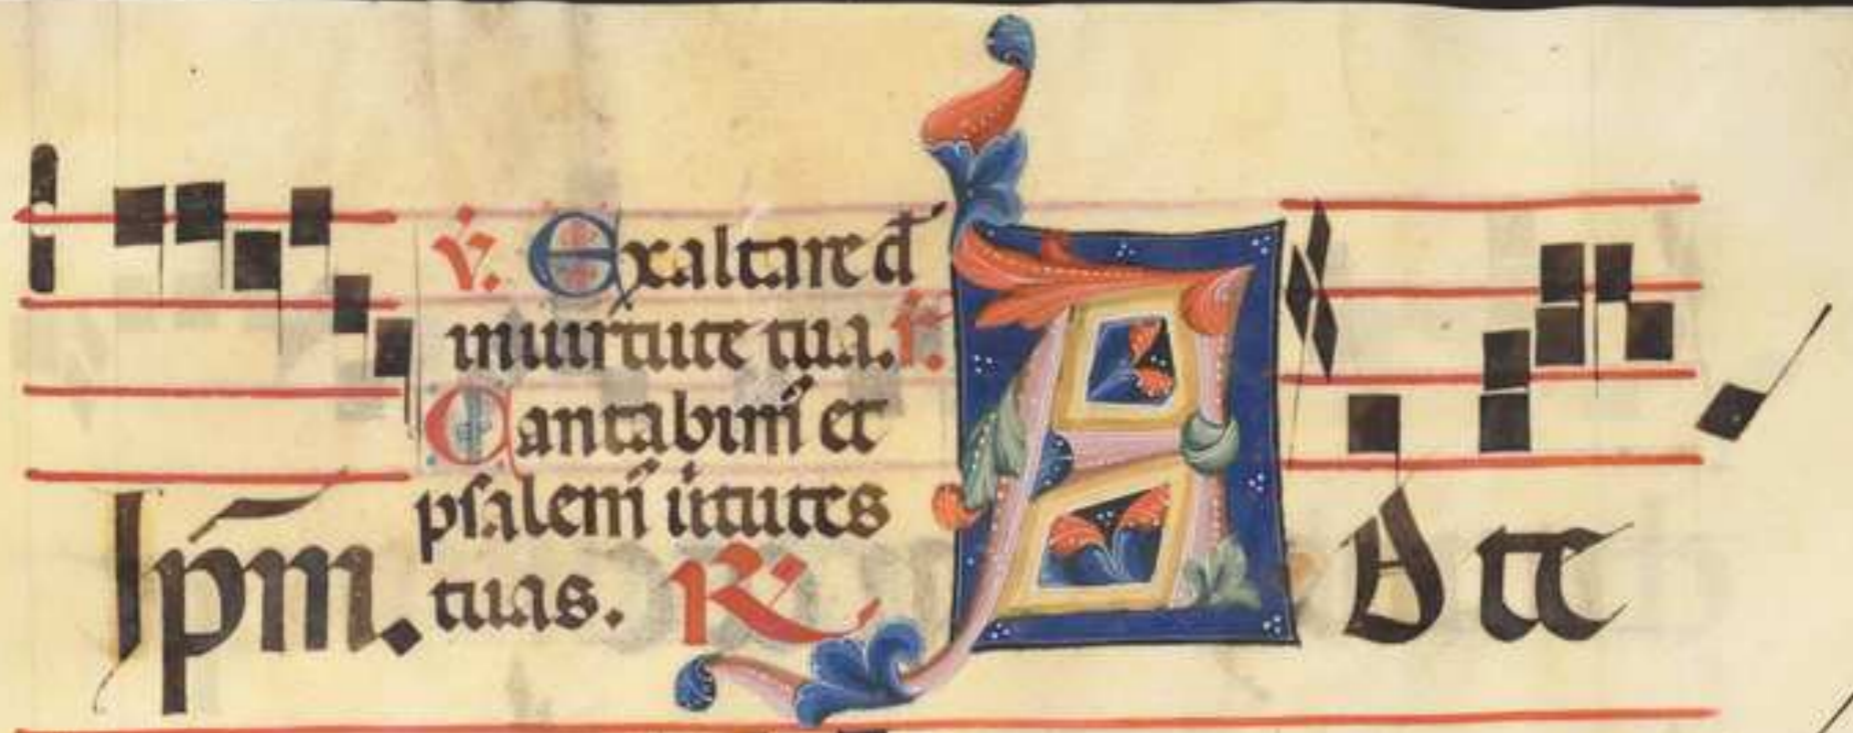 Ip̄m.
℣. Exaltare d̄
in uirtute tua. r.
Cantabim̄ et
psalem̄ ũtutes
tuas. ℟ AD te